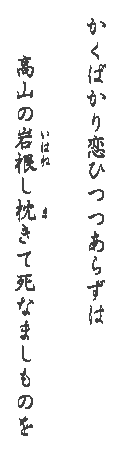 かくばかり恋ひつつあらずは
高山の岩根し枕きて死なましものを